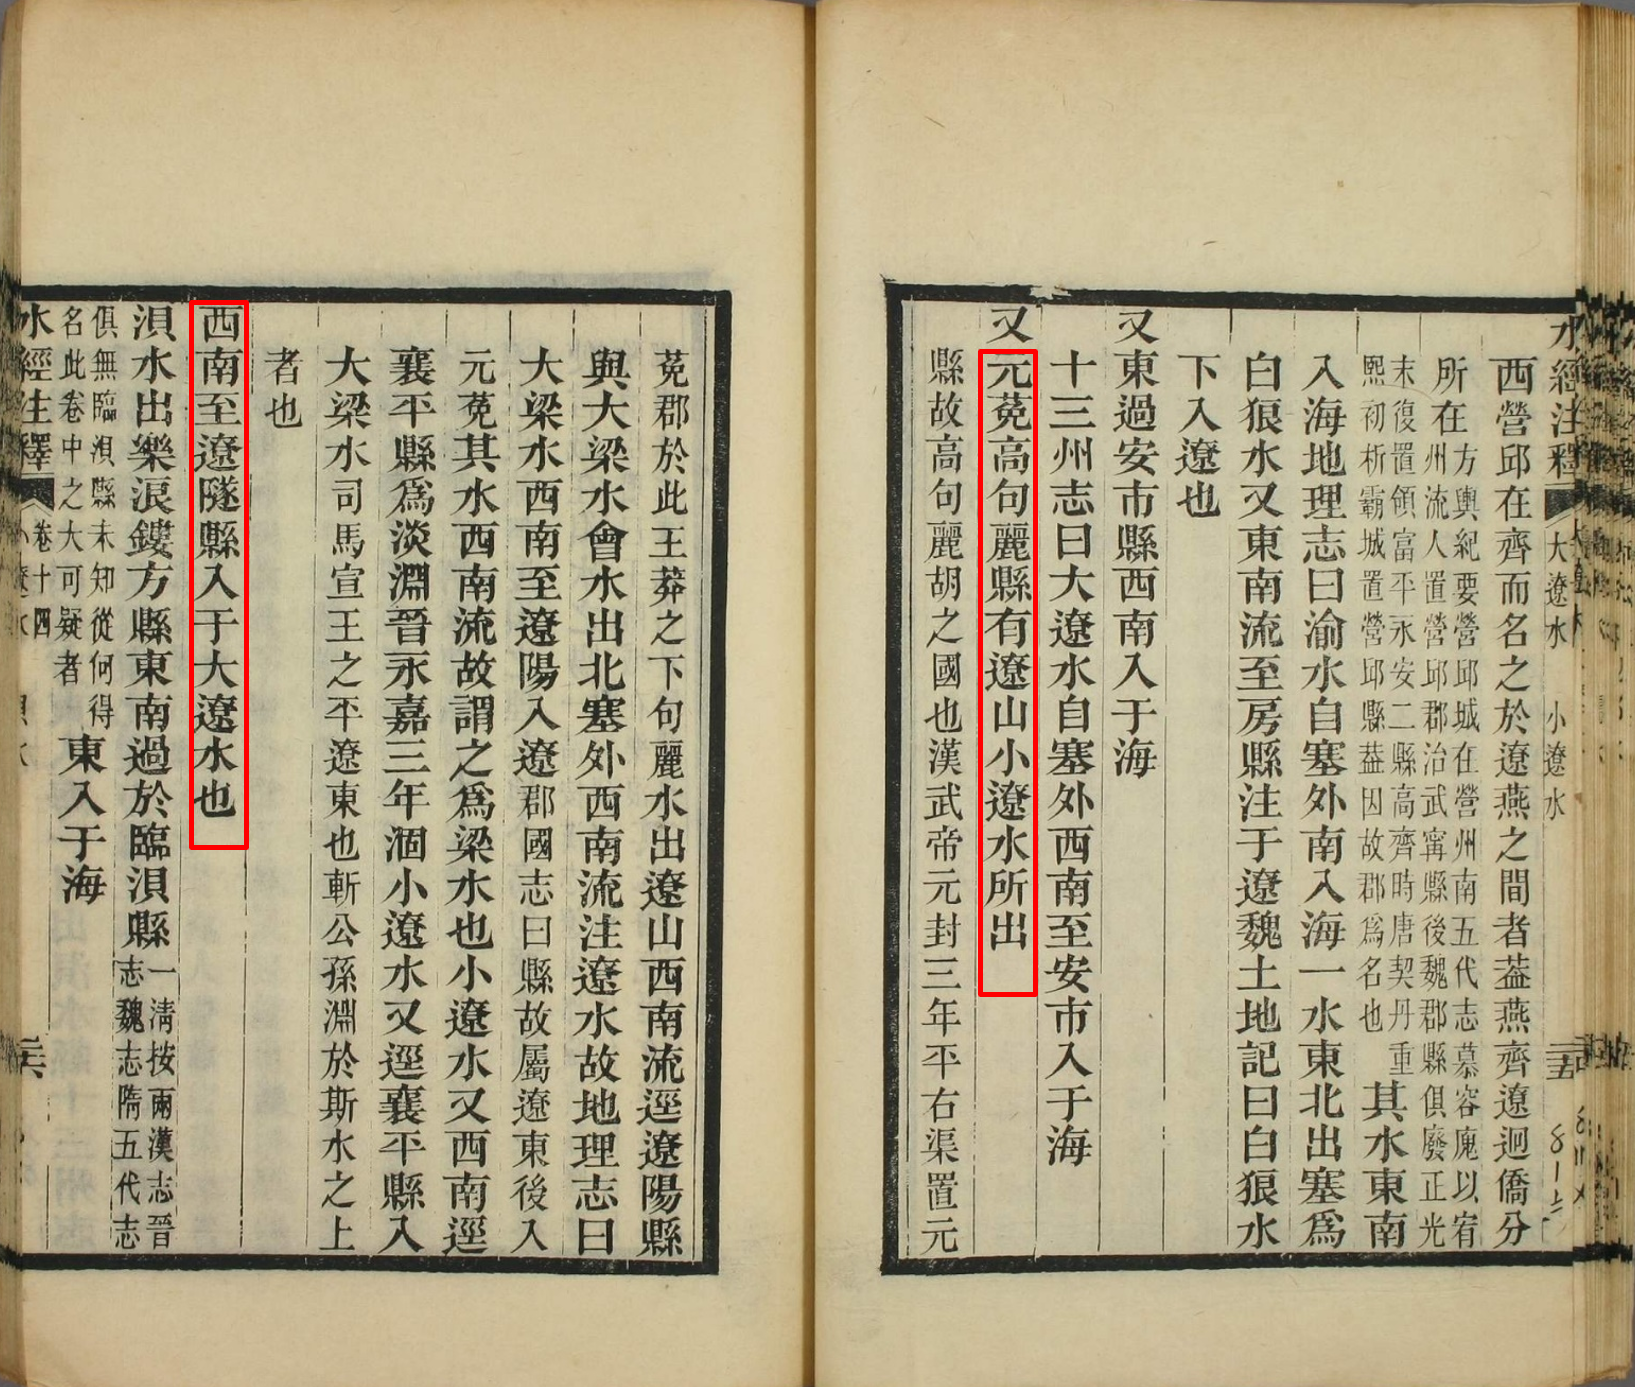 水經注釋 大遼水 小遼水 二十五
西營邱在齊而名之於遼燕之間者葢燕齊遼迥僑分
所在方輿紀要營邱城在營州南五代志慕容廆以宥
州流人置營邱郡治武甯縣後魏郡縣俱廢正光
末復置領富平永安二縣高齊時唐契丹重
熙初析霸城置營邱縣葢因故郡爲名也其水東南
入海地理志曰渝水自塞外南入海一水東北出塞爲
白狼水又東南流至房縣注于遼魏土地記曰白狼水
下入遼也
又東過安市縣西南入于海
十三州志曰大遼水自塞外西南至安市入于海
又元菟高句麗縣有遼山小遼水所出
縣故高句麗胡之國也漢武帝元封三年平右渠置元
菟郡於此王莽之下句麗水出遼山西南流逕遼陽縣
與大梁水會水出北塞外西南流注遼水故地理志曰
大梁水西南至遼陽入遼郡國志曰縣故屬遼東後入
元菟其水西南流故謂之爲梁水也小遼水又西南逕
襄平縣爲淡淵晉永嘉三年涸小遼水又逕襄平縣入
大梁水司馬宣王之平遼東也斬公孫淵於斯水之上
者也
西南至遼隧縣入于大遼水也
浿水出樂浪鏤方縣東南過於臨浿縣一清按兩漢志晉
志魏志隋五代志
俱無臨浿縣未知從何得
名此卷中之大可疑者東入于海
水經注釋 卷十四